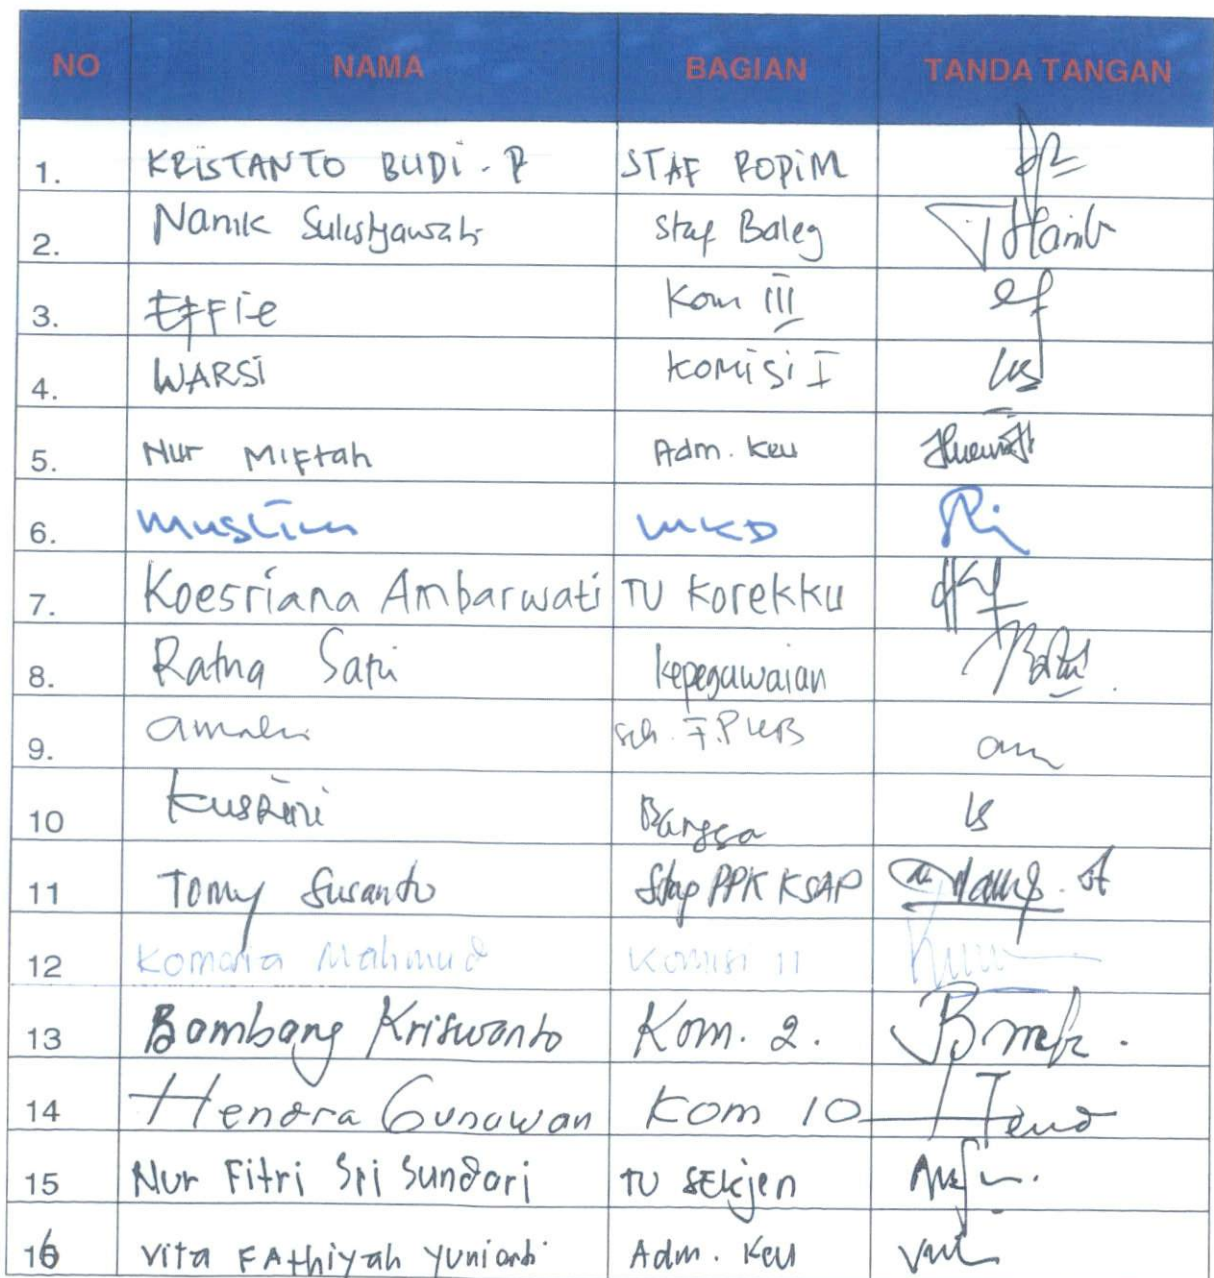 NO NAMA BAGIAN TANDA TANGAN
1. KRISTANTO BUDI . P STAF ROPIM
2. Nanik Sulistyawati Staf Baleg
3. EFFie Kom III ef
4. WARSI KOMISI I
5. Nur Miftah Adm. Keu
6. Muslim MKD
7. Koesriana Ambarwati TU Korekku
8. Ratna Sari Kepegawaian
9. amalia F.PKB am
10 Kusrini Bangsa
11 Tomy Susanto Staf PPK KSAP
12 Komaria Mahmud KOMISI 11
13 Bambang Kriswanto Kom. 2.
14 Hendra Gunawan Kom 10
15 Nur Fitri Sri Sundari TU SEKjen
16 Vita FAthiyah Yuniarti Adm. Keu